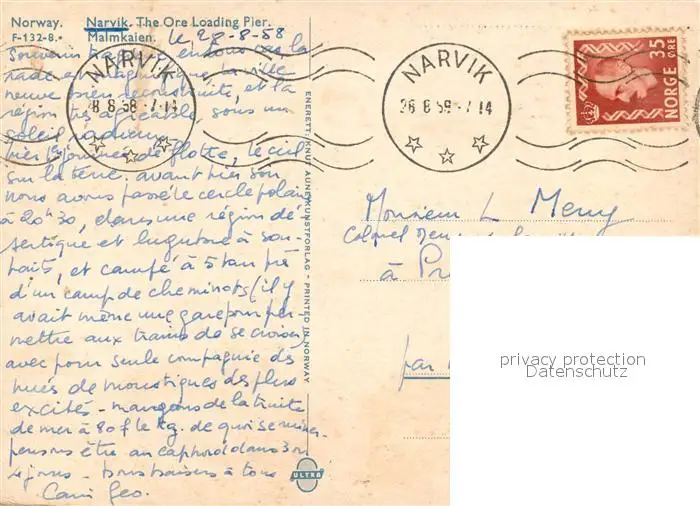 Norway. Narvik. The Ore Loading Pier.
F-132-8. Malmkaien. le 28-8-58
Souvenir
rade et magnifique, la ville
neuve bien reconstruite, et la
région très agréable, sous un
soleil radieux
hier 1e journée de flotte, le ciel
sur la terre. avant hier soir
nous avons passé le cercle polaire
à 20h30, dans une région dé-
sertique et lugubre à sou-
haits, et campé à 5 km
d'un camp de cheminots (il y
avait même une gare pour per-
mettre aux trains de se croiser
avec pour seule compagnie des
nuées de moustiques des plus
excités - mangeons de la truite
de mer à 80f le kg. de quoi se
pensons être au cap nord dans 3 ou
4 jours - bons baisers à tous
Geo.
NARVIK
8 8 58 - 7. 14
NARVIK
26 8 59 - 7 14
NORGE 35 ØRE
ENERETT: KNUT AUNE KUNSTFORLAG - PRINTED IN NORWAY
ULTRA
Monsieur L
Colonel
à
par
privacy protection
Datenschutz